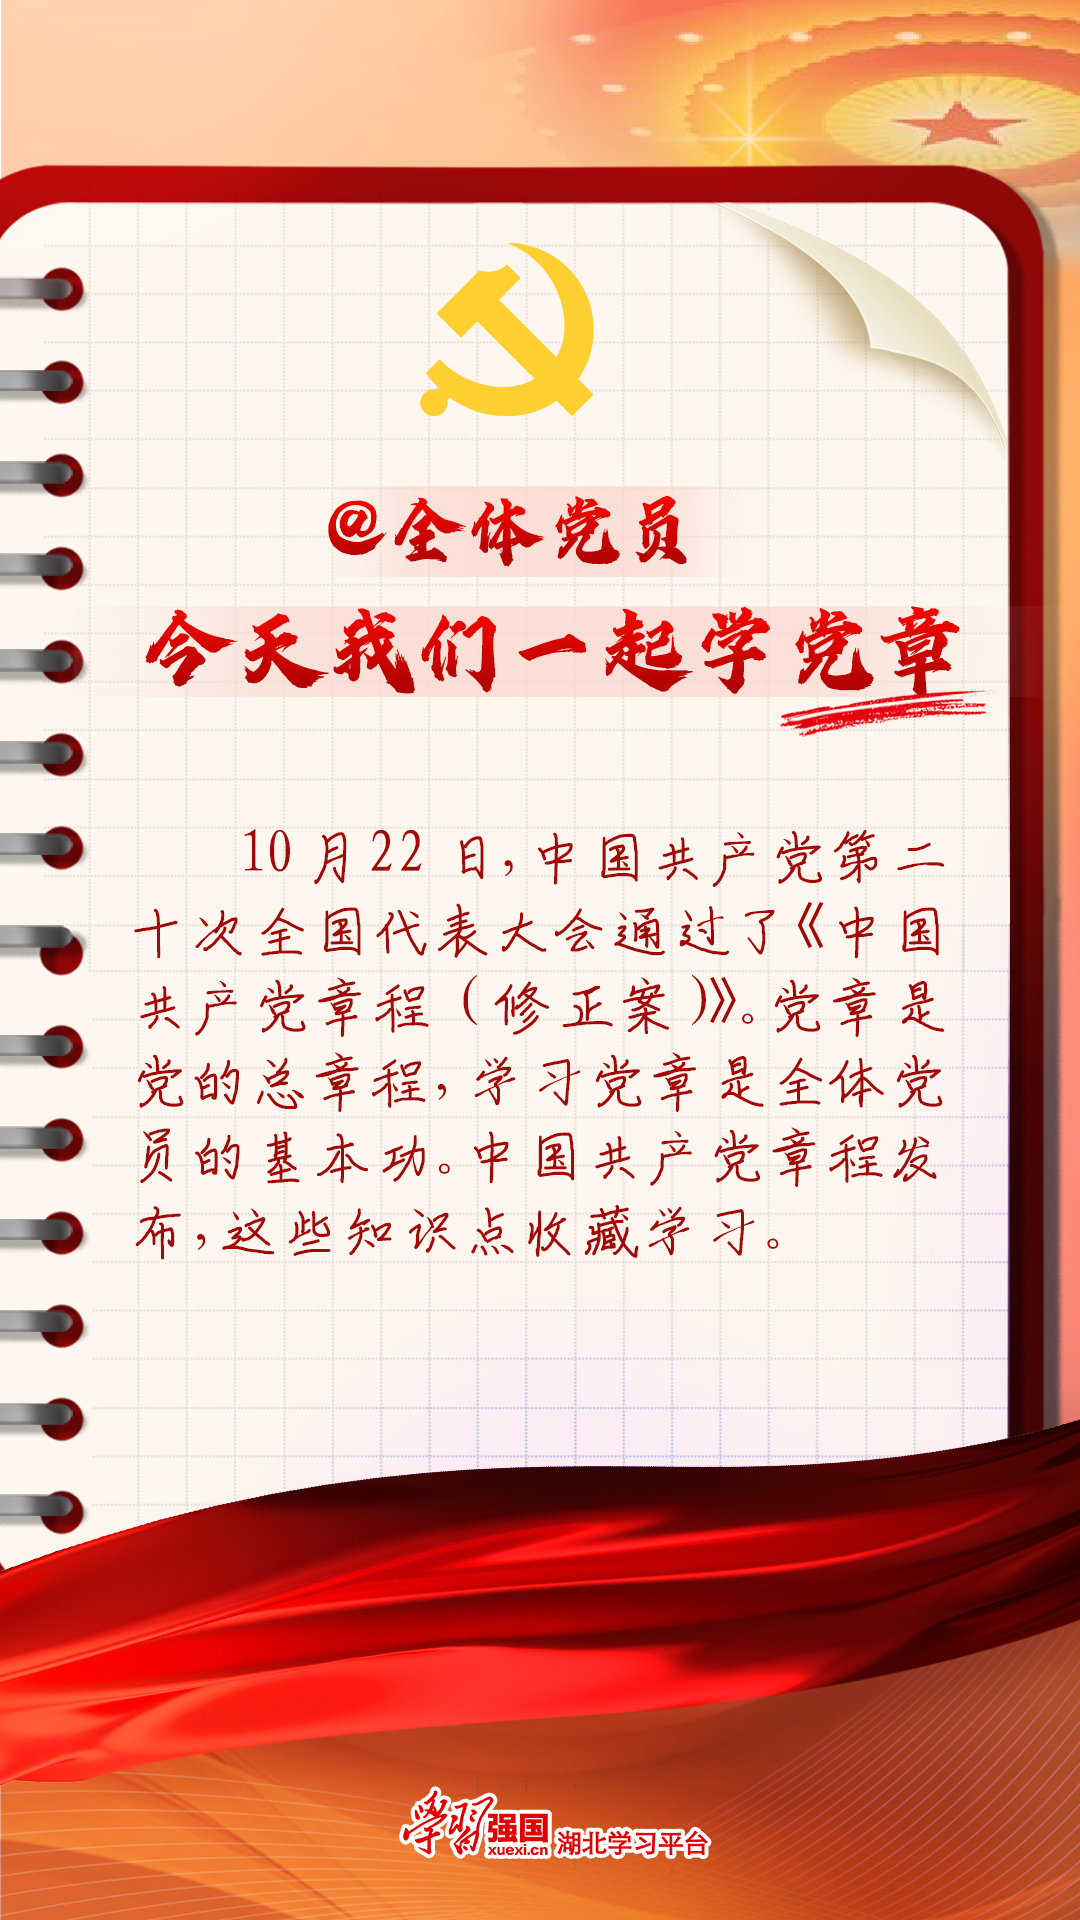 @全体党员
今天我们一起学党章
10月22日,中国共产党第二
十次全国代表大会通过了《中国
共产党章程(修正案)》。党章是
党的总章程,学习党章是全体党
员的基本功。中国共产党章程发
布,这些知识点收藏学习。
学习强国
xuexi.cn
湖北学习平台